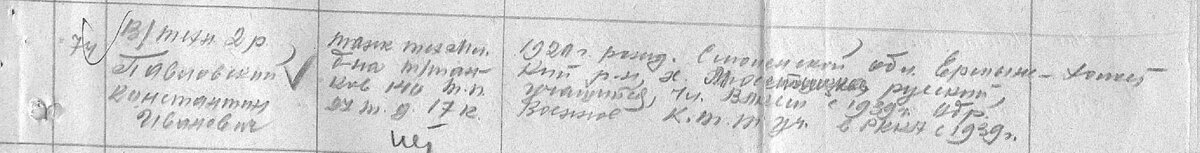 74
В/техн 2 р.
Павловский
Константин
Иванович
танк техн.
б-на т/тан-
ков 140 т.п
т. д. 17 к.
1920 г. рожд. Смоленской обл. Ершич-
кий р-н, х. русский,
учащийся, чл. ВЛКСМ с 1939г. обр.
Военное К. т. т. уч. в РККА с 1939г.